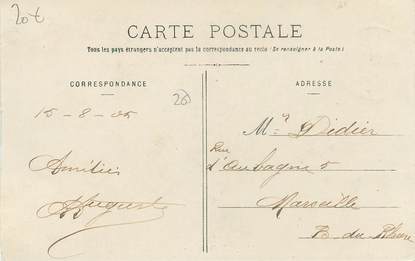 20€
CARTE POSTALE
Tous les pays étrangers n'acceptent pas la correspondance au recto (Se renseigner à la Poste)
CORRESPONDANCE
15-8-05
Amitiés
Auguste
26
ADRESSE
Mr Didier
Rue
d'aubagne 5
Marseille
B du Rhône